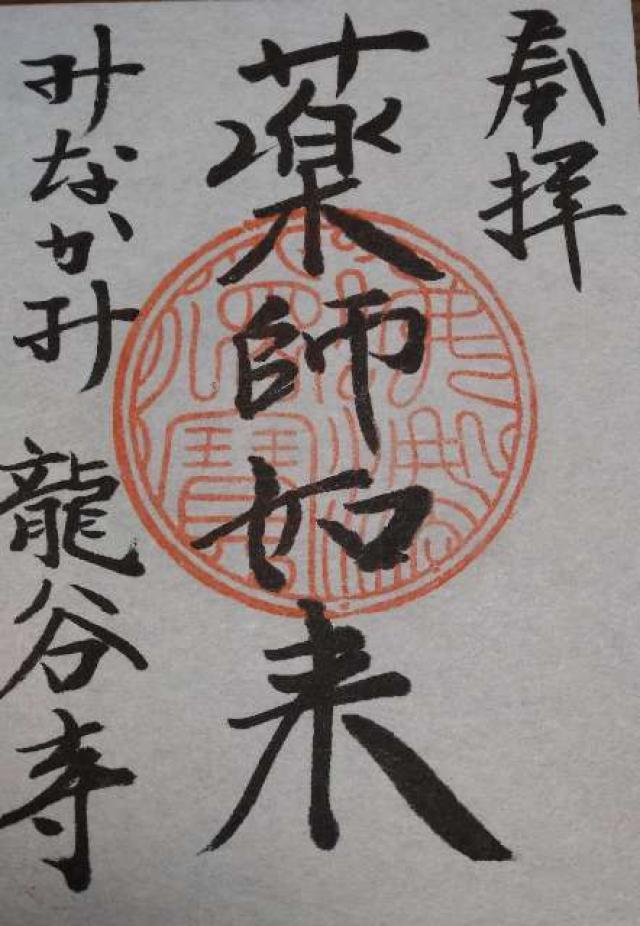 奉拝
薬師如来
みなかみ 龍谷寺